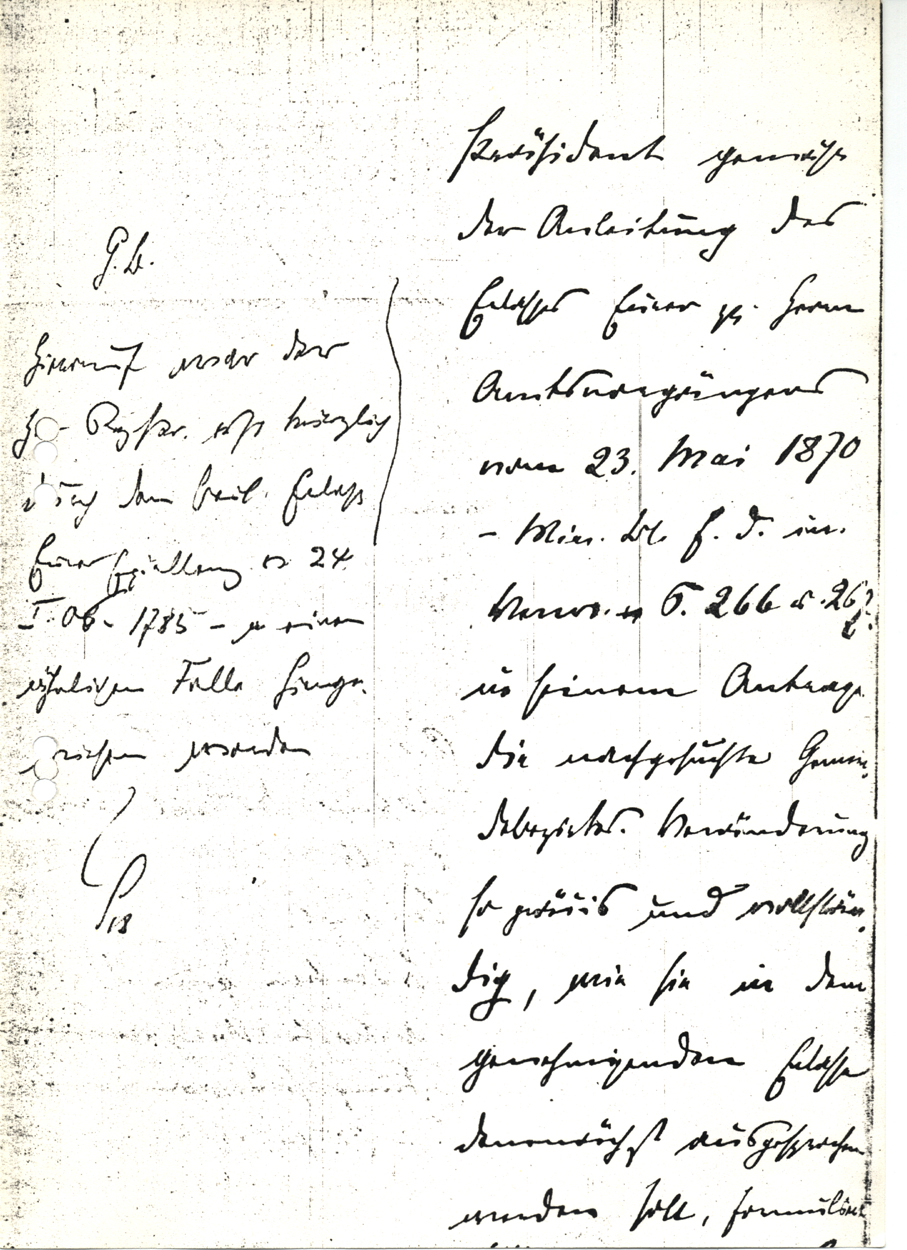 G. B.
Hierauf war der
H. Regstr. erst kürzlich
durch den beil. Erlaß
Eurer Excellenz v. 24.
I. 06 - 1785 - in einem
ähnlichen Falle hinge-
wiesen worden
18
Präsident gemäß
der Anleitung des
Erlasses Eurer pp. Herrn
Amtsvorgängers
vom 23. Mai 1870
- Min. Bl. f. d. inn.
Verw. S. 266 u. 267
in seinem Antrage
die nachgesuchte Gemein-
debezirks-Veränderung
so präzis und vollstän-
dig, wie sie in dem
genehmigenden Erlasse
demnächst ausgesprochen
werden soll, formuliert